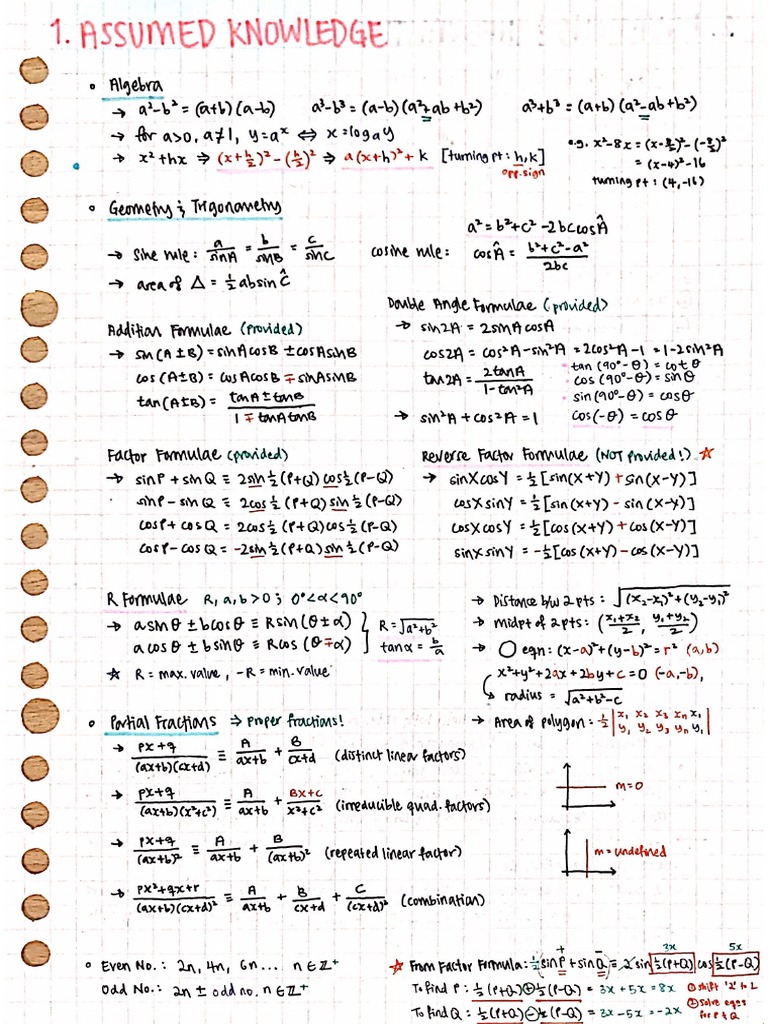 1. ASSUMED KNOWLEDGE
• Algebra
→ a²-b² = (a+b)(a-b) a³-b³ = (a-b)(a²+ab+b²) a³+b³ = (a+b)(a²-ab+b²)
→ for a>0, a≠1, y=aˣ ⇔ x=logₐy
→ x²+hx ⇒ (x+h/2)²-(h/2)² ⇒ a(x+h)²+k [turning pt: h,k]
opp. sign
e.g. x²-8x = (x-8/2)²-(-8/2)²
= (x-4)²-16
turning pt: (4,-16)
• Geometry & Trigonometry
→ Sine rule: a/sinA = b/sinB = c/sinC
cosine rule: a² = b²+c²-2bccosÂ
cosÂ = (b²+c²-a²)/2bc
→ area of △ = ½absinĈ
Addition Formulae (provided)
→ sin(A±B) = sinAcosB ± cosAsinB
cos(A±B) = cosAcosB ∓ sinAsinB
tan(A±B) = (tanA±tanB)/(1∓tanAtanB)
Double Angle Formulae (provided)
→ sin2A = 2sinAcosA
cos2A = cos²A-sin²A = 2cos²A-1 = 1-2sin²A
tan2A = 2tanA/(1-tan²A)
tan(90°-θ) = cotθ
cos(90°-θ) = sinθ
sin(90°-θ) = cosθ
cos(-θ) = cosθ
→ sin²A+cos²A = 1
Factor Formulae (provided)
→ sinP + sinQ ≡ 2sin½(P+Q)cos½(P-Q)
sinP - sinQ ≡ 2cos½(P+Q)sin½(P-Q)
cosP + cosQ ≡ 2cos½(P+Q)cos½(P-Q)
cosP - cosQ ≡ -2sin½(P+Q)sin½(P-Q)
Reverse Factor Formulae (NOT provided!) ☆
→ sinXcosY = ½[sin(X+Y) + sin(X-Y)]
cosXsinY = ½[sin(X+Y) - sin(X-Y)]
cosXcosY = ½[cos(X+Y) + cos(X-Y)]
sinXsinY = -½[cos(X+Y) - cos(X-Y)]
R Formulae R, a, b > 0 ; 0°<α<90°
→ asinθ ± bcosθ ≡ Rsin(θ±α)
acosθ ± bsinθ ≡ Rcos(θ∓α)
R = √(a²+b²)
tanα = b/a
☆ R = max. value, -R = min. value
→ Distance b/w 2 pts: √((x₂-x₁)²+(y₂-y₁)²)
→ midpt of 2 pts: ((x₁+x₂)/2, (y₁+y₂)/2)
→ ○ eqn: (x-a)²+(y-b)² = r² (a,b)
x²+y²+2ax+2by+c=0 (-a,-b),
radius = √(a²+b²-c)
→ Area of polygon: ½ |x₁ x₂ x₃ xₙ x₁|
|y₁ y₂ y₃ yₙ y₁|
• Partial Fractions ⇒ proper fractions!
→ (px+q)/((ax+b)(cx+d)) ≡ A/(ax+b) + B/(cx+d) (distinct linear factors)
→ (px+q)/((ax+b)(x²+c²)) ≡ A/(ax+b) + (Bx+c)/(x²+c²) (irreducible quad. factors)
→ (px+q)/(ax+b)² ≡ A/(ax+b) + B/(ax+b)² (repeated linear factor)
→ (px²+qx+r)/((ax+b)(cx+d)²) ≡ A/(ax+b) + B/(cx+d) + C/(cx+d)² (combination)
m=0
m = undefined
• Even No.: 2n, 4n, 6n... n∈ℤ⁺
Odd No.: 2n ± odd no. n∈ℤ⁺
3x 5x
☆ From Factor Formula: ½(sinP + sinQ) = 2 sin ½(P+Q) cos ½(P-Q)
To find P: ½(P+Q) + ½(P-Q) = 3x + 5x = 8x
To find Q: ½(P+Q) - ½(P-Q) = 3x - 5x = -2x
① shift '2' to L
② solve eqns
for P & Q